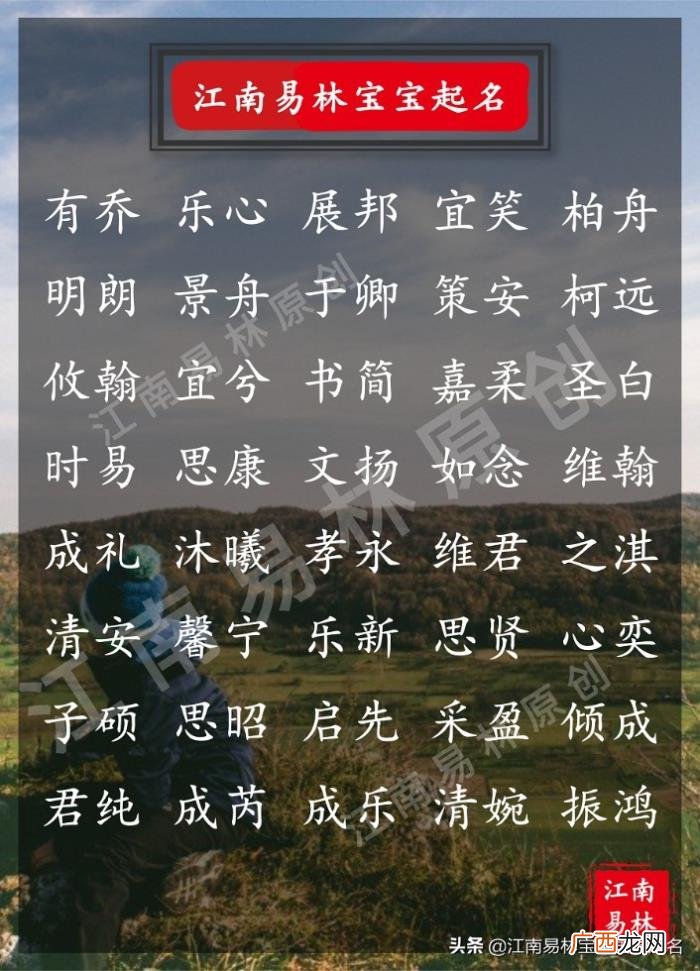 江南易林宝宝起名
有乔 乐心 展邦 宜笑 柏舟
明朗 景舟 于卿 策安 柯远
攸翰 宜兮 书简 嘉柔 圣白
时易 思康 文扬 如念 维翰
成礼 沐曦 孝永 维君 之淇
清安 馨宁 乐新 思贤 心奕
子硕 思昭 启先 采盈 倾成
君纯 成芮 成乐 清婉 振鸿
江南易林原创
江南易林原创
江南易林原创
江南
易林
头条 @江南易林宝
广西龙网
名